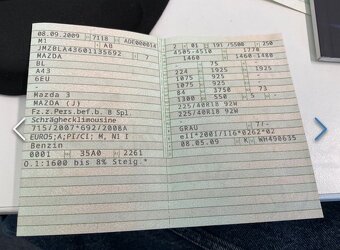 08.09.2009 7118 ADE000014
M1 AB
JMZBLA43601135692 7
MAZDA
BL
A43
6EU
-
Mazda 3
MAZDA (J)
Fz.z.Pers.bef.b. 8 Spl.
Schräghecklimousine
715/2007*692/2008A
EURO5;A;PI/CI; M, N1 I
Benzin
0001 35A0 2261
O.1:1600 bis 8% Steig.*
2 01 191/5500 250
4505-4510 1770
1460 1460-1480
- 75 -
224 1925 1925
- 975 925
- 975 925
84 3750 73
1300 550 5 -
225/40R18 92W
225/40R18 92W
-
GRAU 7/-
e11*2001/116*0262*02
08.05.09 K WH490635